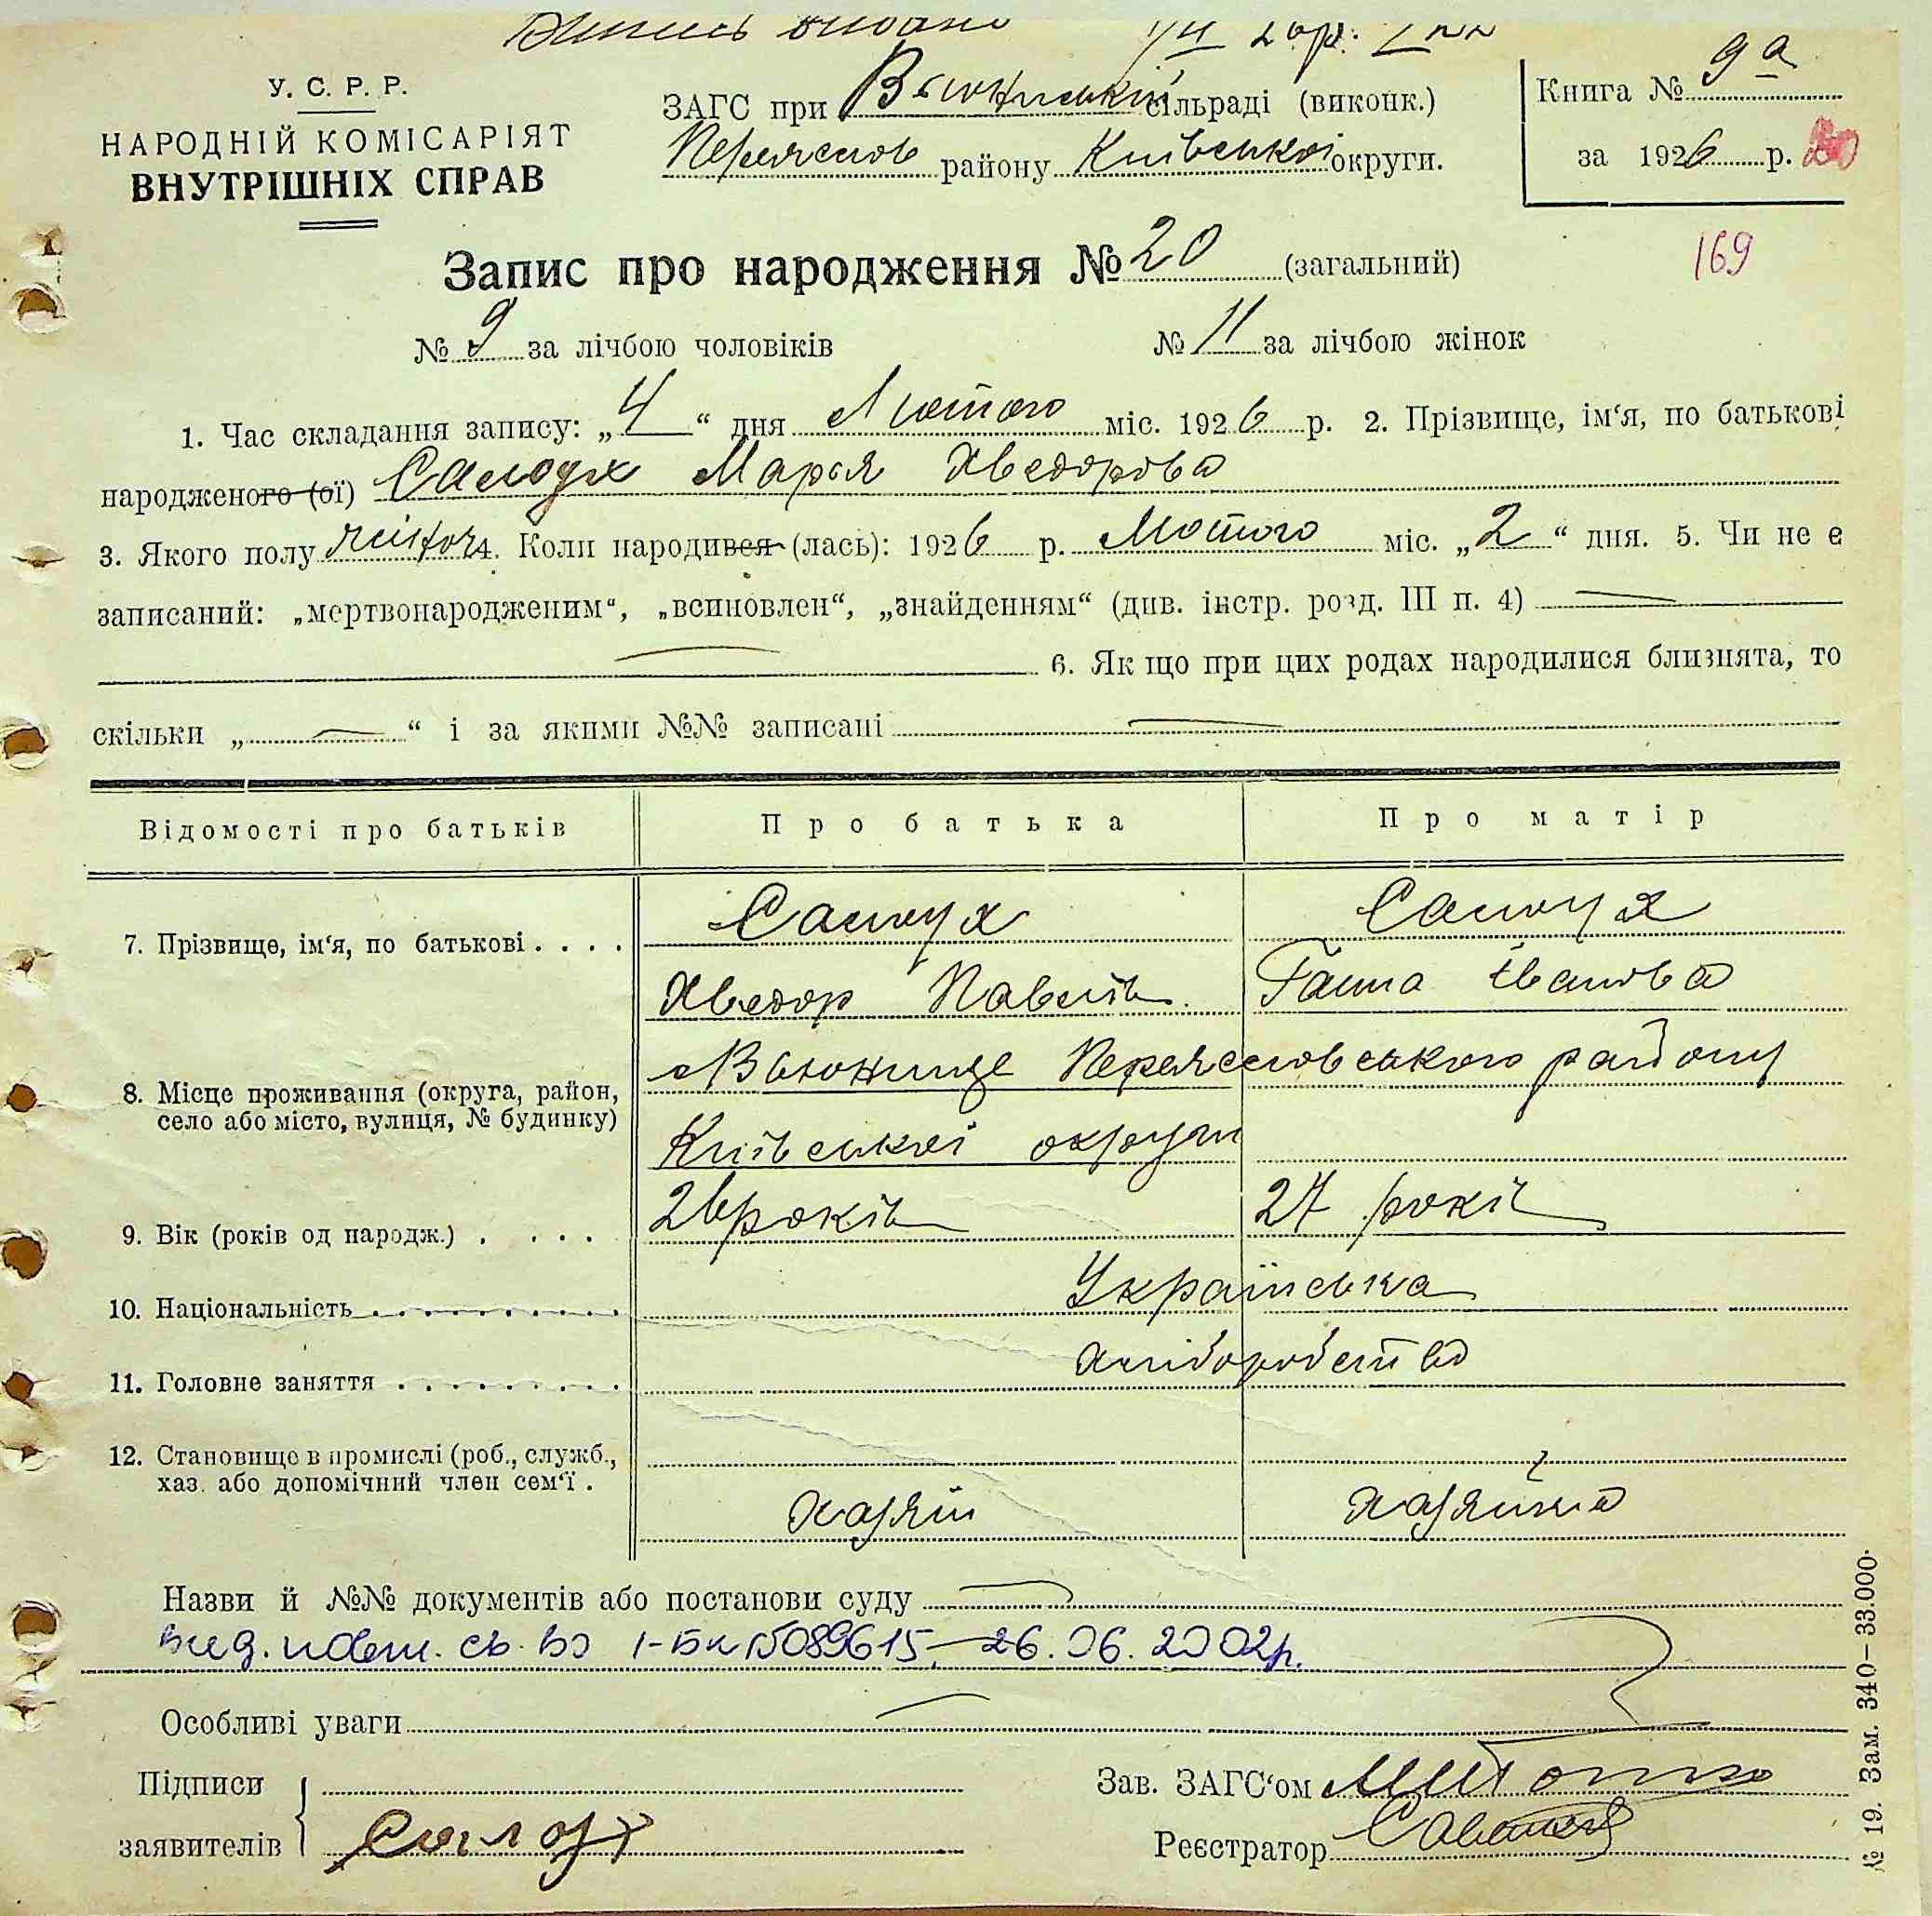 У. С. Р. Р.
НАРОДНІЙ КОМІСАРІЯТ
ВНУТРІШНІХ СПРАВ
ЗАГС при Вьюниській сільраді (виконк.)
Переяслов району Київської округи.
Книга № 9а
за 1926 р.
169
Запис про народження № 20 (загальний)
№ 9 за лічбою чоловіків № 11 за лічбою жінок
1. Час складання запису: „4“ дня Лютого міс. 1926 р. 2. Прізвище, ім‘я, по батькові
народженого (ої) Самоух Марья Хведорова
3. Якого полу 4. Коли народився (лась): 1926 р. Лютого міс. „2“ дня. 5. Чи не є
записаний: „мертвонародженим“, „всиновлен“, „знайденням“ (див. інстр. розд. III п. 4) —
— 6. Як що при цих родах народилися близнята, то
скільки „—“ і за якими №№ записані —
Відомості про батьків Про батька Про матір
7. Прізвище, ім‘я, по батькові . . . . Самоух Самоух
Хведор Павлів Ганна Іванова
8. Місце проживання (округа, район, село або місто, вулиця, № будинку) Вьюнище Переясловського району
Київської округи
9. Вік (років од народж.) . . . . 26 років 27 років
10. Національність . . . . . . . . . . Українська
11. Головне заняття . . . . . . . . . хліборобство
12. Становище в промислі (роб., служб.,
хаз. або допомічний член сем‘ї . хазяін хазяйка
Назви й №№ документів або постанови суду —
вид. повт. св. во 1-БК №089615 26.06.2002р.
Особливі уваги —
Підписи
заявителів
Зав. ЗАГС‘ом
Реєстратор
№ 19. Зам. 340—33.000.